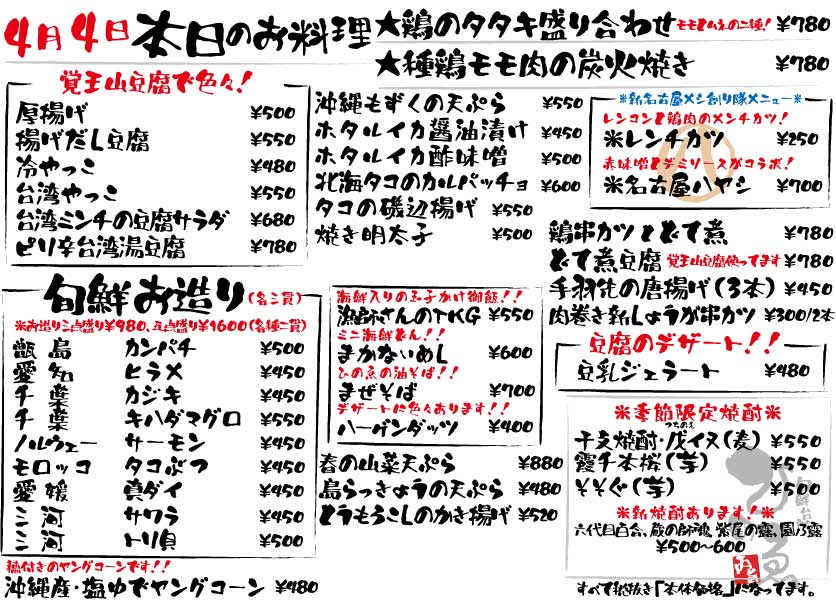 4月4日 本日のお料理
★鶏のタタキ盛り合わせ モモとムネの二種! ¥780
★種鶏モモ肉の炭火焼き ¥780
覚王山豆腐で色々!
厚揚げ ¥500
揚げだし豆腐 ¥550
冷やっこ ¥480
台湾やっこ ¥550
台湾ミンチの豆腐サラダ ¥680
ピリ辛台湾湯豆腐 ¥780
沖縄もずくの天ぷら ¥550
ホタルイカ醤油漬け ¥450
ホタルイカ酢味噌 ¥500
北海タコのカルパッチョ ¥600
タコの磯辺揚げ ¥550
焼き明太子 ¥500
※新名古屋メシ創り隊メニュー※
レンコンと鶏肉のメンチカツ!
※レンチカツ ¥250
赤味噌とデミソースがコラボ!
※名古屋ハヤシ ¥700
鶏串カツとどて煮 ¥780
どて煮豆腐 覚王山豆腐使ってます ¥780
手羽先の唐揚げ(3本) ¥450
肉巻き新しょうが串カツ ¥300/2本
旬鮮お造り(各二貫)
※お造り三点盛り¥980、五点盛り¥1600(各種二貫)
甑島 カンパチ ¥500
愛知 ヒラメ ¥450
千葉 カジキ ¥450
千葉 キハダマグロ ¥550
ノルウェー サーモン ¥450
モロッコ タコぶつ ¥450
愛媛 真ダイ ¥450
三河 サワラ ¥450
三河 トリ貝 ¥500
穂付きのヤングコーンです!!
沖縄産・塩ゆでヤングコーン ¥480
海鮮入りの玉子かけ御飯!!
漁師さんのTKG ¥550
ミニ海鮮どん!!
まかないめし ¥600
ひの魚の油そば!!
まぜそば ¥700
デザートに色々あります!!
ハーゲンダッツ ¥400
春の山菜天ぷら ¥880
島らっきょうの天ぷら ¥480
とうもろこしのかき揚げ ¥520
豆腐のデザート!!
豆乳ジェラート ¥480
※季節限定焼酎※
つちのえ
干支焼酎・戊イヌ(麦) ¥550
霞千本桜(芋) ¥550
そそぐ(芋) ¥500
※新焼酎あります!※
六代目百合、蔵の師魂、紫尾の露、園乃露
¥500~600
すべて税抜き「本体価格」になってます。